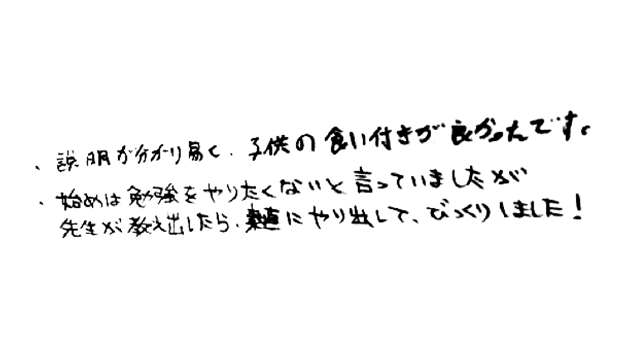 ・説明が分かり易く、子供の食い付きが良かったです。
・始めは勉強をやりたくないと言っていましたが
先生が教え出したら、素直にやり出して、びっくりしました!